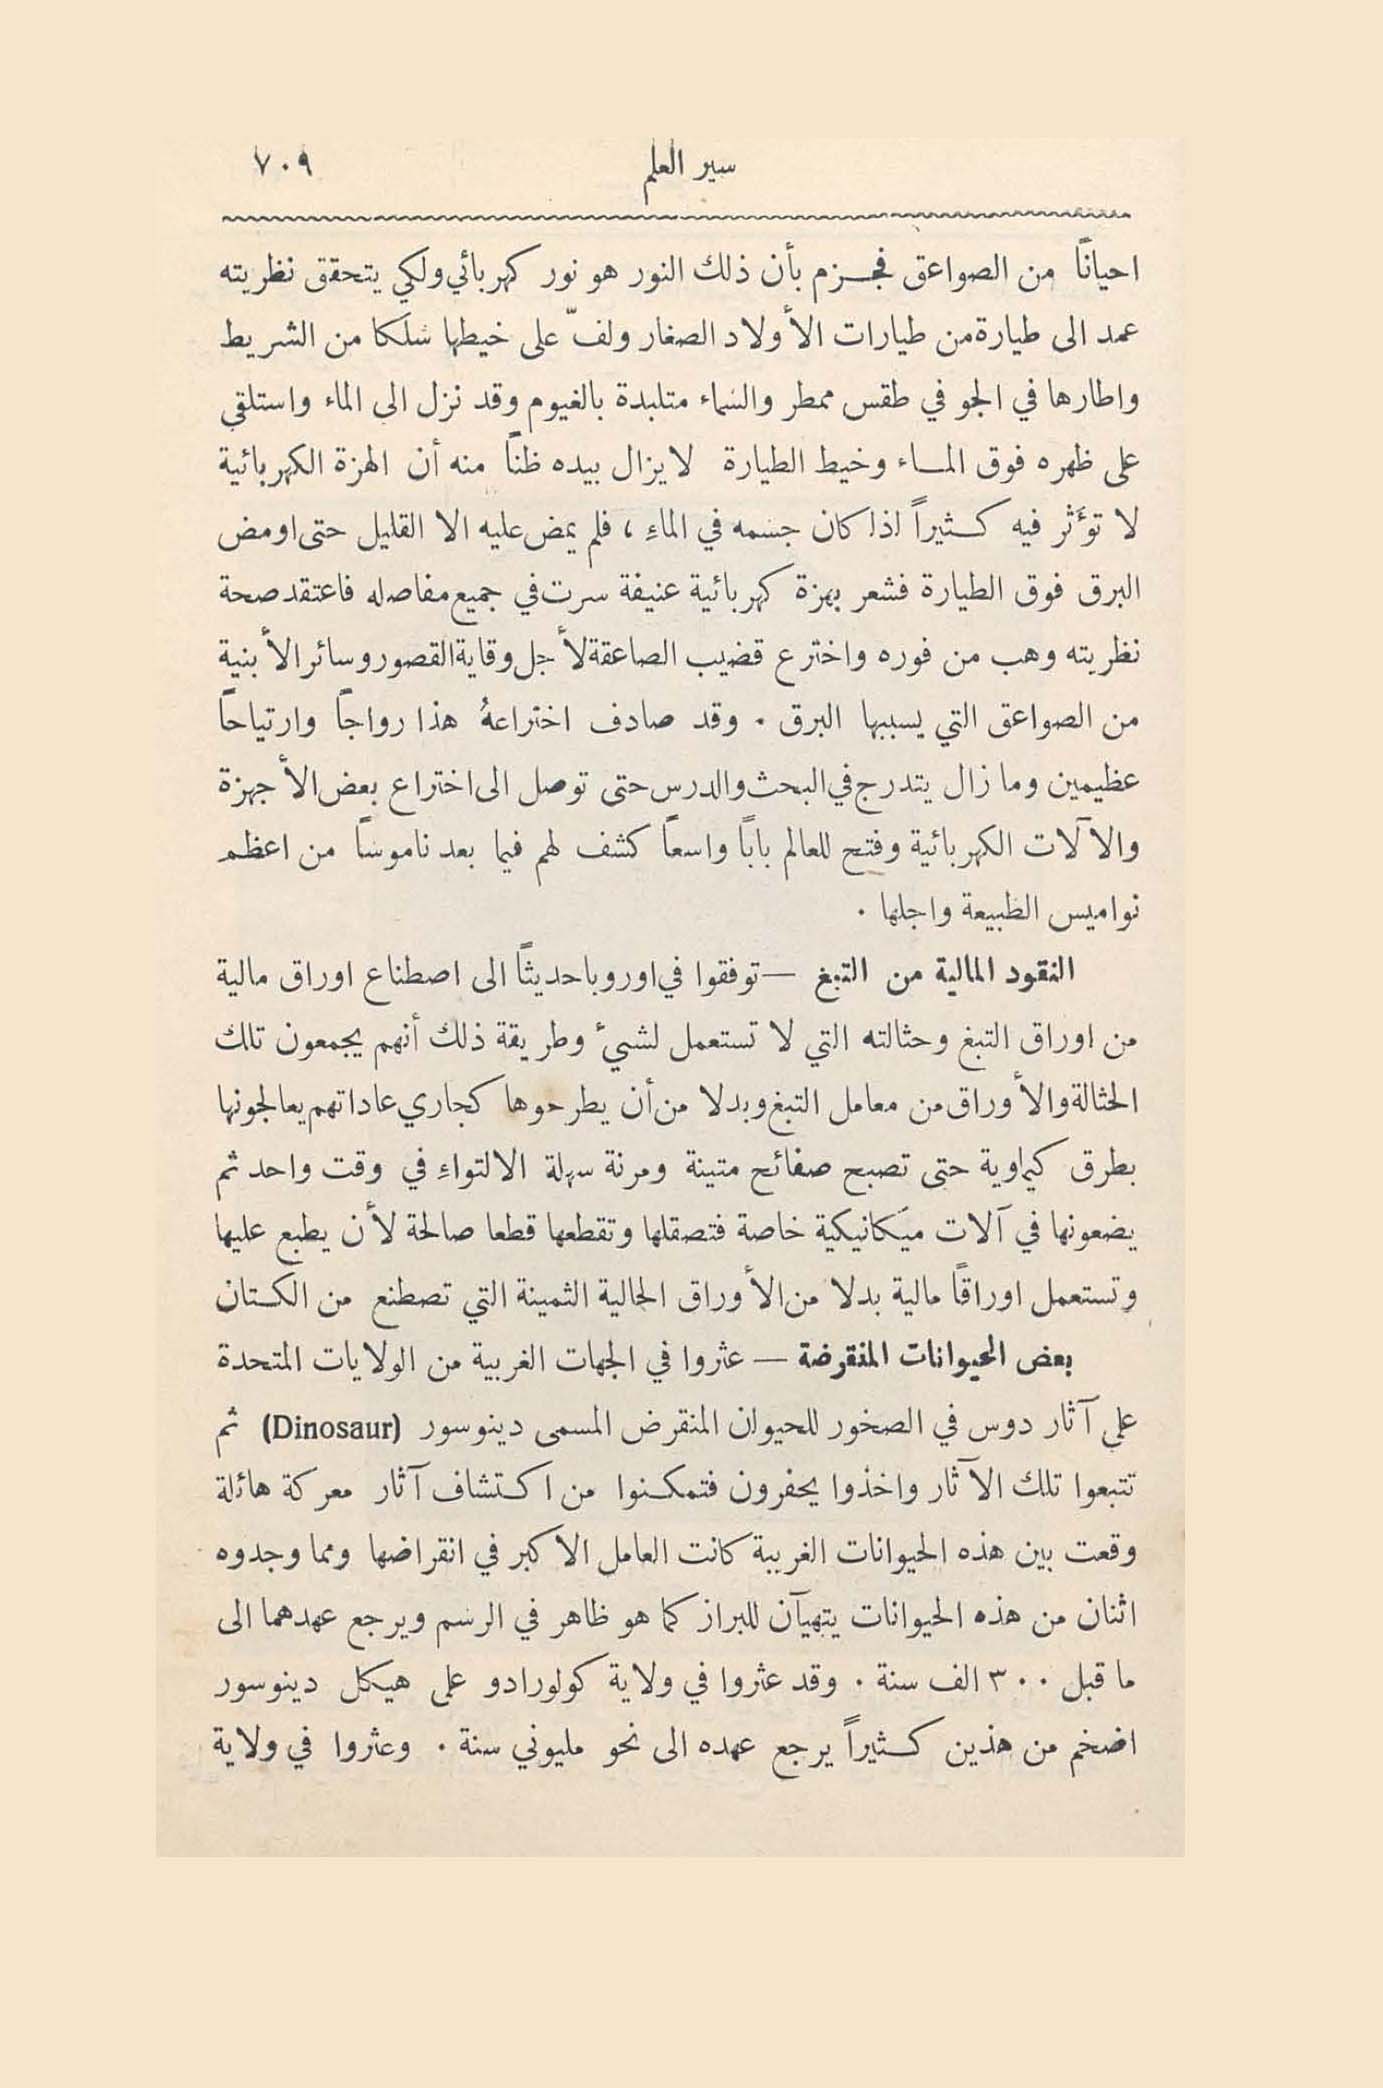 سير العلم ٧٠٩
احيانًا من الصواعق فجزم بأن ذلك النور هو نور كهربائي ولكي يتحقق نظريته
عمد الى طيارة من طيارات الأولاد الصغار ولفّ على خيطها سلكا من الشريط
واطارها في الجو في طقس ممطر والسماء متلبدة بالغيوم وقد نزل الى الماء واستلقى
على ظهره فوق الماء وخيط الطيارة لا يزال بيده ظنًا منه أن الهزة الكهربائية
لا تؤثر فيه كثيراً اذا كان جسمه في الماءِ ، فلم يمض عليه الا القليل حتى اومض
البرق فوق الطيارة فشعر بهزة كهربائية عنيفة سرت في جميع مفاصله فاعتقد صحة
نظريته وهب من فوره واخترع قضيب الصاعقة لأجل وقاية القصور وسائر الأبنية
من الصواعق التي يسببها البرق . وقد صادف اختراعهُ هذا رواجاً وارتياحاً
عظيمين وما زال يتدرج في البحث والدرس حتى توصل الى اختراع بعض الأجهزة
والآلات الكهربائية وفتح للعالم بابًا واسعاً كشف لهم فيما بعد ناموساً من اعظم
نواميس الطبيعة واجلها .
النقود المالية من التبغ — توفقوا في اوروبا حديثًا الى اصطناع اوراق مالية
من اوراق التبغ وحثالته التي لا تستعمل لشيء وطريقة ذلك أنهم يجمعون تلك
الحثالة والأوراق من معامل التبغ وبدلا من أن يطرحوها كجاري عاداتهم يعالجونها
بطرق كيماوية حتى تصبح صفائح متينة ومرنة سهلة الالتواءِ في وقت واحد ثم
يضعونها في آلات ميكانيكية خاصة فتصقلها وتقطعها قطعا صالحة لأن يطبع عليها
وتستعمل اوراقًا مالية بدلا من الأوراق الحالية الثمينة التي تصطنع من الكتان
بعض الحيوانات المنقرضة — عثروا في الجهات الغربية من الولايات المتحدة
على آثار دوس في الصخور للحيوان المنقرض المسمى دينوسور (Dinosaur) ثم
تتبعوا تلك الآثار واخذوا يحفرون فتمكنوا من اكتشاف آثار معركة هائلة
وقعت بين هذه الحيوانات الغريبة كانت العامل الاكبر في انقراضها ومما وجدوه
اثنان من هذه الحيوانات يتهيآن للبراز كما هو ظاهر في الرسم ويرجع عهدهما الى
ما قبل ٣٠٠ الف سنة . وقد عثروا في ولاية كولورادو على هيكل دينوسور
اضخم من هذين كثيراً يرجع عهده الى نحو مليوني سنة . وعثروا في ولاية